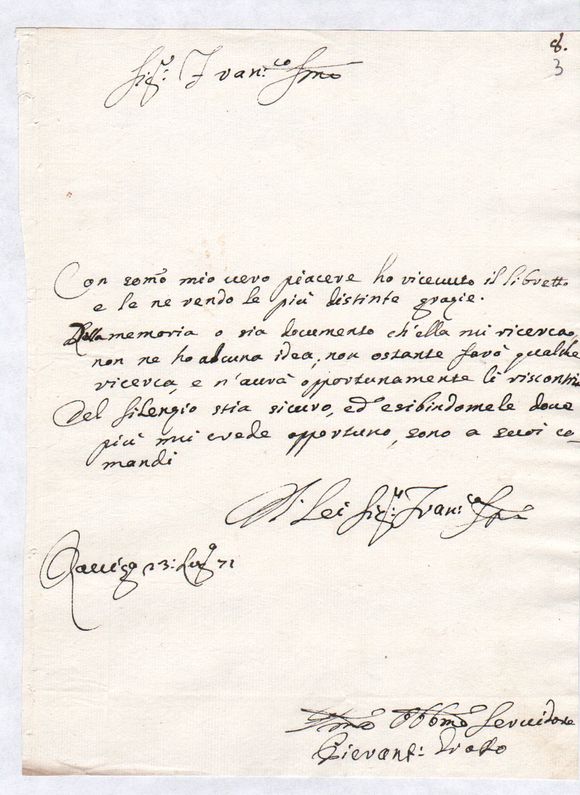 8.
3
Sig.r Fran.co Stmo
Con somo mio vero piacere ho ricevuto il libretto
e le ne rendo le più distinte grazie.
Della memoria o sia documento ch'ella mi ricerca,
non ne ho alcuna idea; non ostante farò qualche
ricerca, e n'aurà opportunamente li riscontri
Del silenzio stia sicuro, ed esibindomele dove
più mi crede opportuno, sono a suoi co-
mandi
Di Lei Sig.r Fran.co
23: Lug.o 71
Obbmo Servidore
Giovanf: